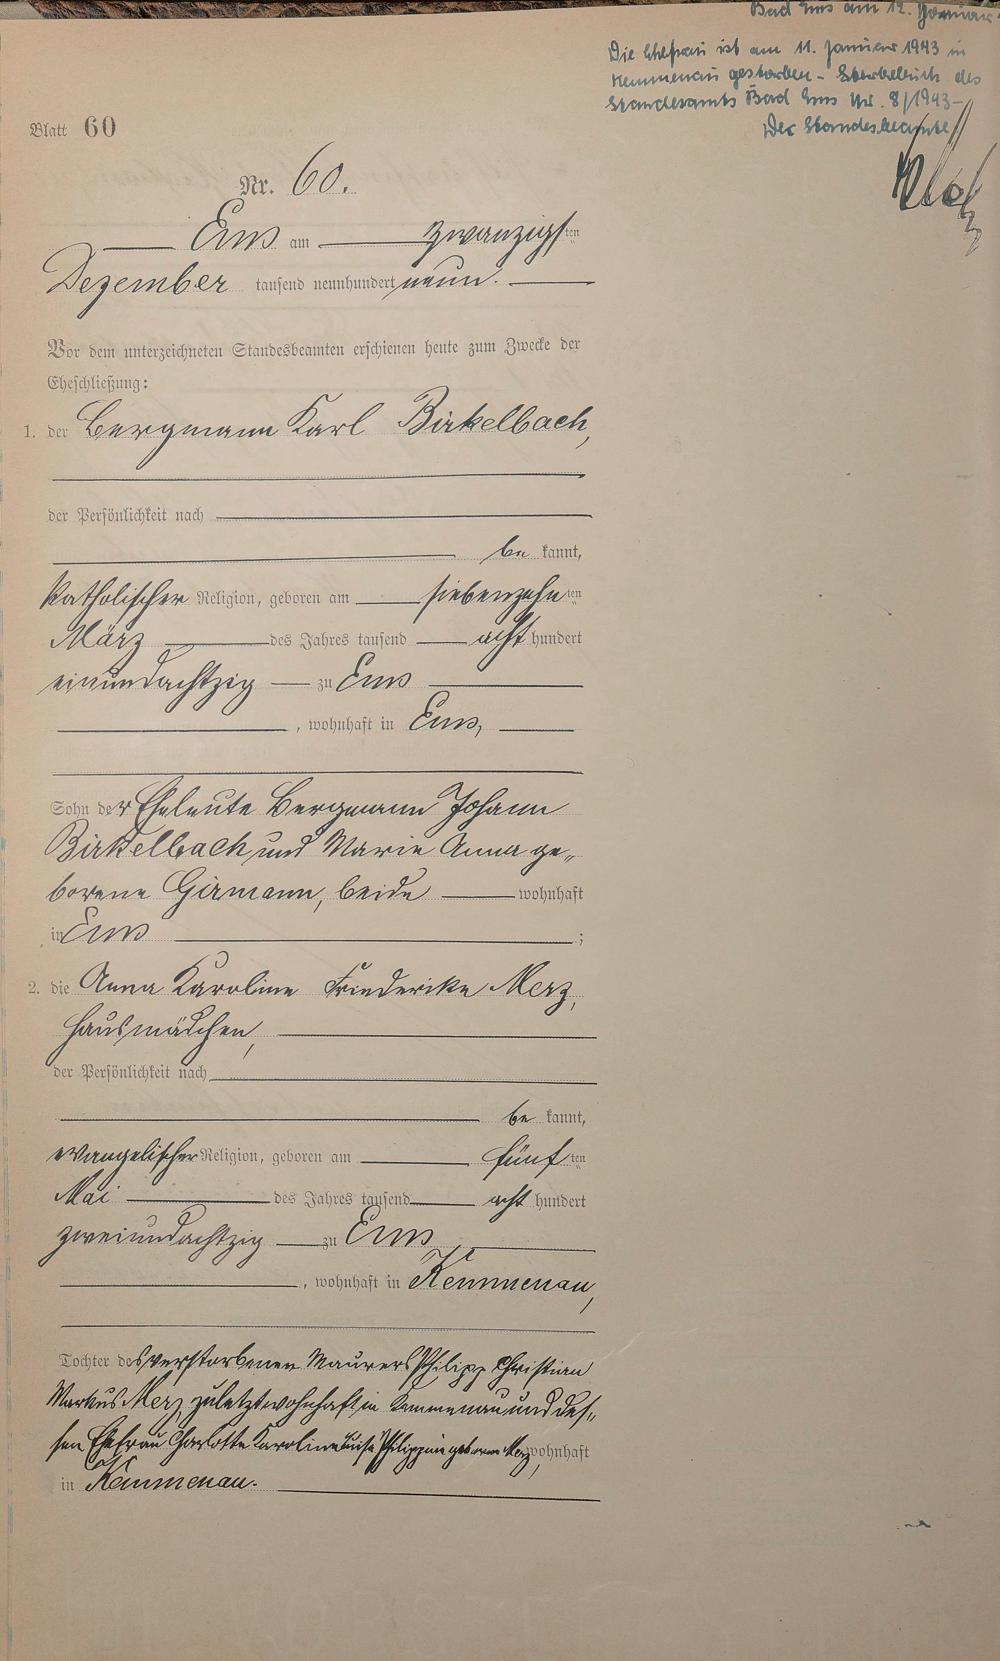 Bad Ems am 12. Januar
Die Ehefrau ist am 11. Januar 1943 in
Kemmenau gestorben – Sterbebuch des
Standesamts Bad Ems Nr. 8/1943 –
Der Standesbeamte
Blatt 60
Nr. 60.
Ems am zwanzigsten
Dezember tausend neunhundert neun.
Vor dem unterzeichneten Standesbeamten erschienen heute zum Zwecke der
Eheschließung:
1. der Bergmann Karl Birkelbach,
der Persönlichkeit nach
be kannt,
katholischer Religion, geboren am siebenzehnten
März des Jahres tausend acht hundert
einundachtzig zu Ems
, wohnhaft in Ems,
Sohn der Eheleute Bergmann Johann
Birkelbach und Marie Anna ge„
borene Girmann, beide wohnhaft
in Ems ;
2. die Anna Karoline Friederike Merz,
Hausmädchen,
der Persönlichkeit nach
be kannt,
evangelischer Religion, geboren am fünften
Mai des Jahres tausend acht hundert
zweiundachtzig zu Ems
, wohnhaft in Kemmenau,
Tochter des verstorbenen Maurers Philipp Christian
Markus Merz, zuletzt wohnhaft in Kemmenau und des„
sen Ehefrau Charlotte Karoline Luise Philippine geborene Merz, wohnhaft
in Kemmenau.